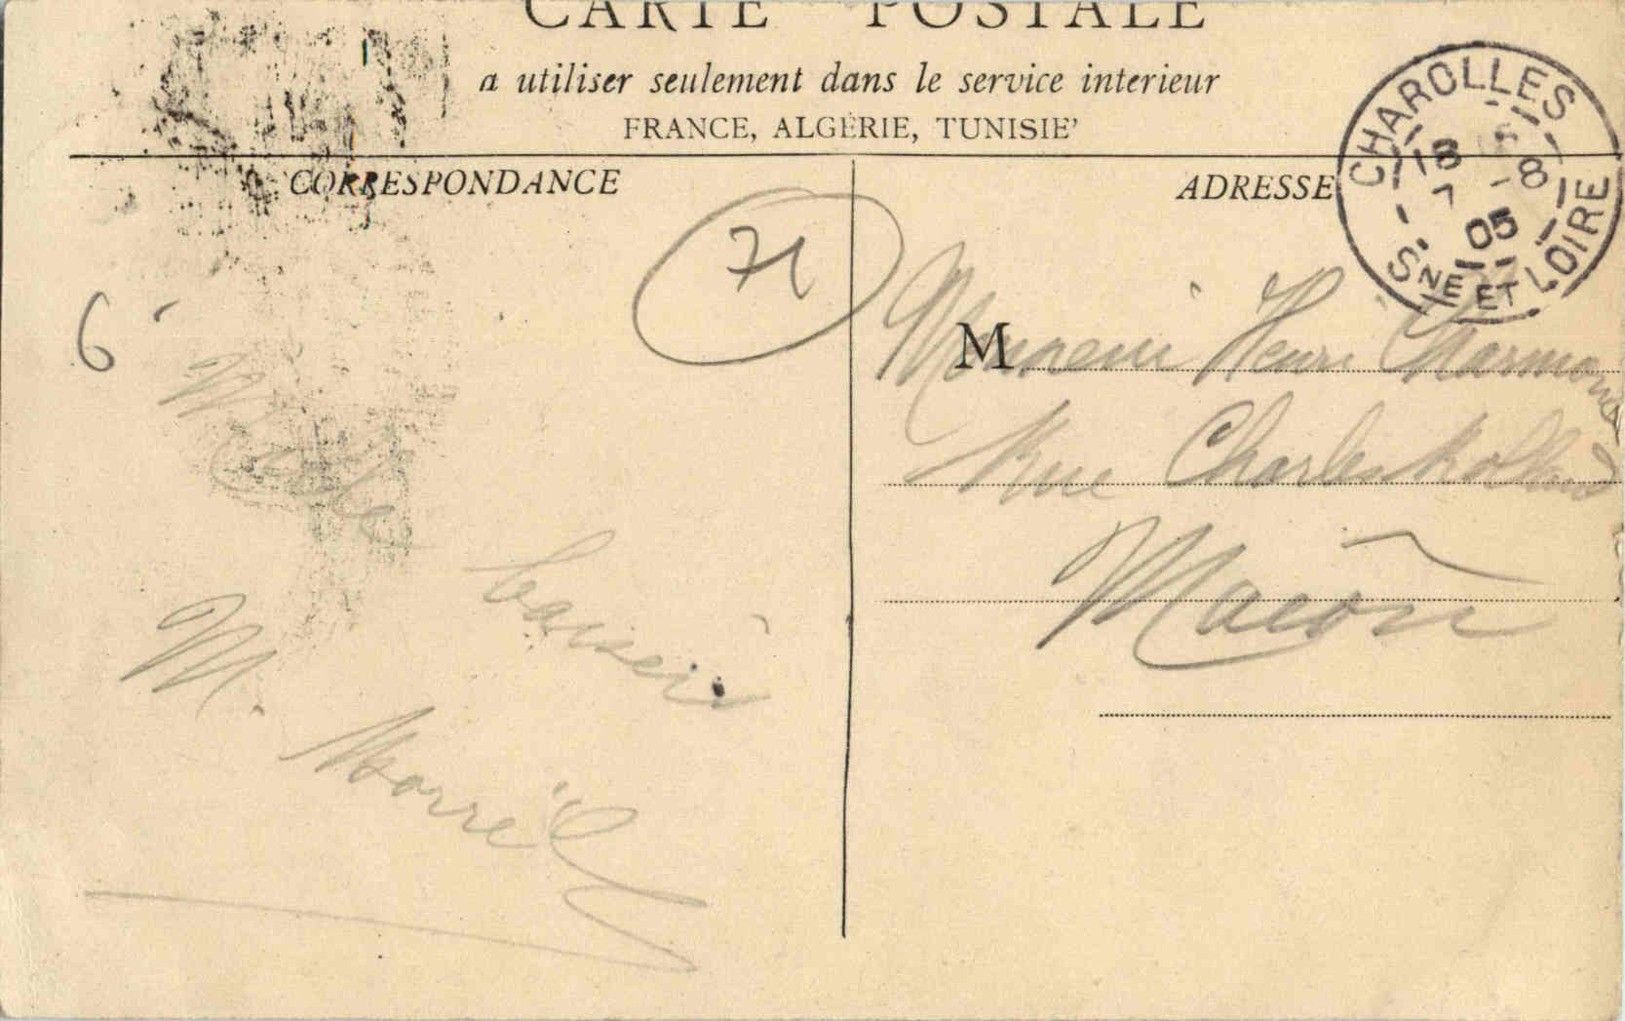 CARTE POSTALE
a utiliser seulement dans le service interieur
FRANCE, ALGÉRIE, TUNISIE'
CORRESPONDANCE
ADRESSE
CHAROLLES
18
7 -8
05
SNE ET LOIRE
71
6
M
Monsieur Henri
Rue Charles Rolland
Macon
Mille
baisers
M.